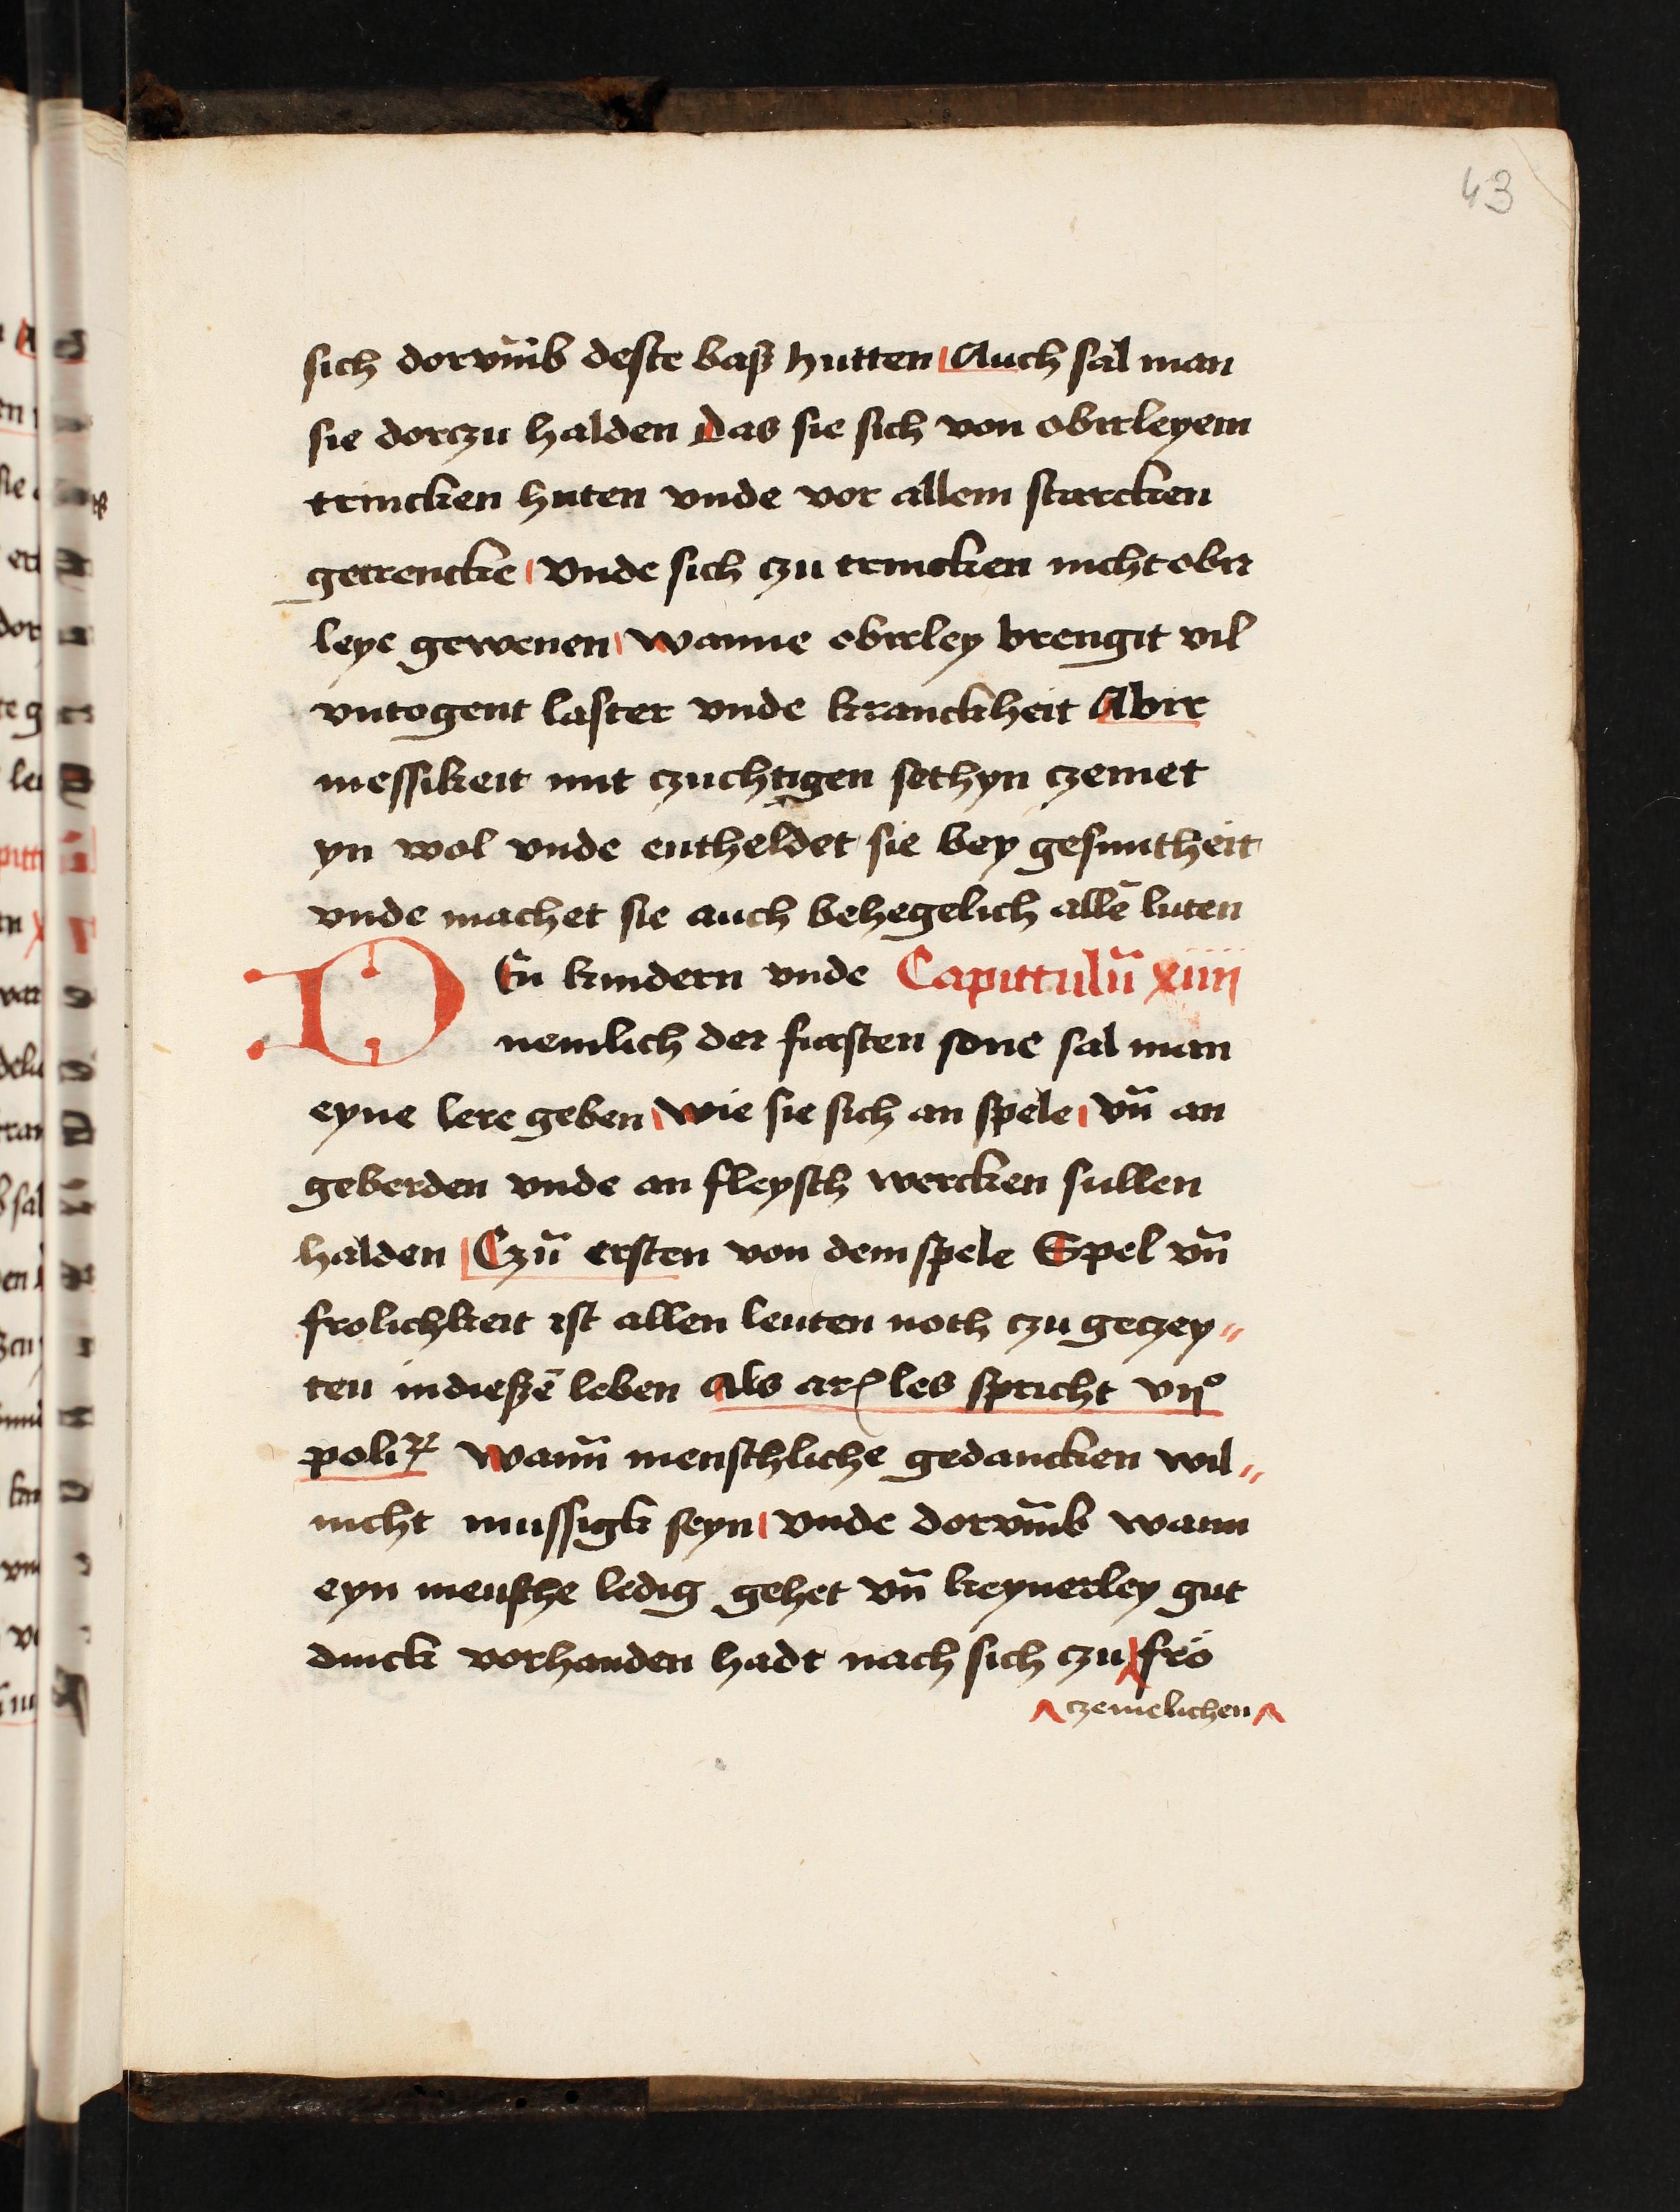 43
sich dorvm̄b deste baß hutten Auch sal man
sie dorczu halden Das sie sich von obirleyem
trincken huten vnde vor allem starcken
getrencke vnde sich czu trincken nicht obir
leye gewenen wanne obirley brengit vil
vntogent laster vnde kranckheit Abir
messikeit mit czuchtigen sethyn czemet
yn wol vnde entheldet sie bey gesuntheit
vnde machet sie auch behegelich allē luten
DEn̄ kindern vnde Capittulū xiiii
nemlich der fursten sone sal man
eyne lere geben wie sie sich an spele vn̄ an
geberden vnde an fleysch wercken sullen
halden Czū ersten von dem spele Spel vn̄
frolichkeit ist allen leuten noth czu geczey〃
ten in dießē leben als ar̲les spricht vii°
poliꝝ wann̄ menschliche gedancken wil〃
nicht mussigk seyn vnde dorvm̄b wann
eyn mensche ledig gehet vn̄ keynerley gut
dinck vorhanden hadt nach sich czu frö
czemelichen